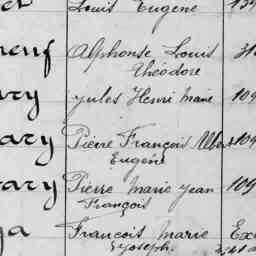 Louis Eugène
neuf Alphonse Louis 31
Théodore
ry Jules Henri Marie 109
ary Pierre François Albert 109
Eugène
ary Pierre Marie Jean 109
François
a François Marie Ex
Joseph